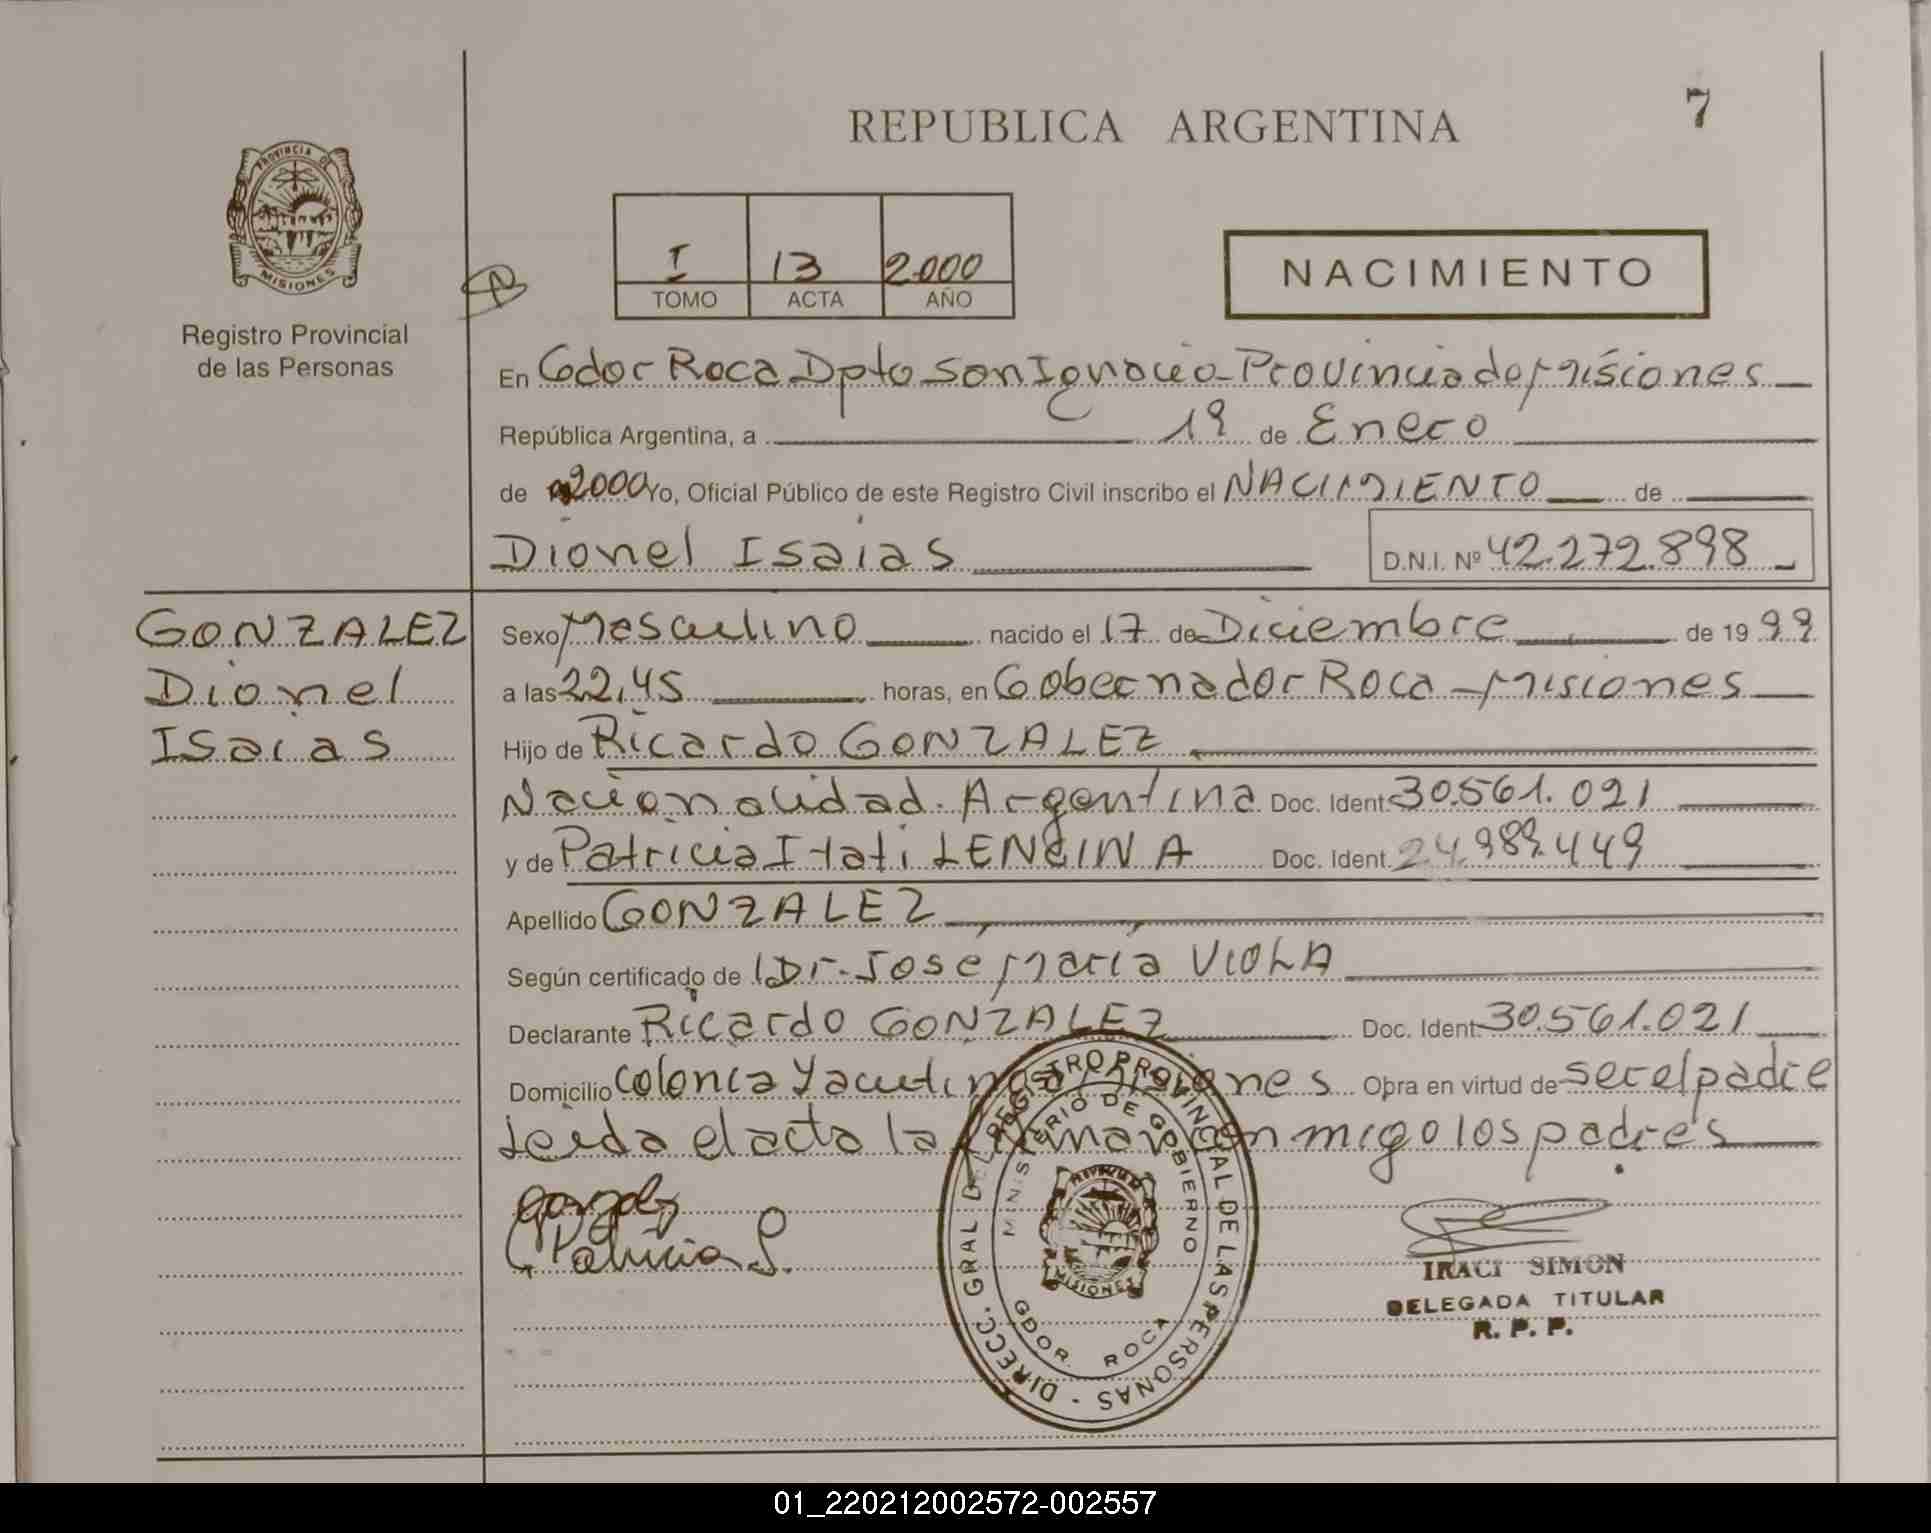 REPUBLICA ARGENTINA
7
PROVINCIA DE
MISIONES
Registro Provincial
de las Personas
I 13 2.000
TOMO ACTA AÑO
NACIMIENTO
En Gdor Roca Dpto San Ignacio - Provincia de Misiones
República Argentina, a 19 de Enero
de 2000 Yo, Oficial Público de este Registro Civil inscribo el NACIMIENTO de
Dionel Isaias D.N.I. Nº 42.272.898
GONZALEZ
Dionel
Isaias
Sexo Masculino nacido el 17 de Diciembre de 19 99
a las 22,45 horas, en Gobernador Roca - Misiones
Hijo de Ricardo GONZALEZ
Nacionalidad Argentina Doc. Ident. 30.561.021
y de Patricia Itati LENCINA Doc. Ident. 24.989.449
Apellido GONZALEZ
Según certificado de Dr. Jose Maria VIOLA
Declarante Ricardo GONZALEZ Doc. Ident. 30.561.021
Domicilio Colonia Yacutinga Misiones Obra en virtud de ser el padre
Leida el acta la firman conmigo los padres
Patricia L.
DIRECC. GRAL DEL REGISTRO PROVINCIAL DE LAS PERSONAS -
MINISTERIO DE GOBIERNO
MISIONES
GDOR. ROCA
IRACI SIMON
DELEGADA TITULAR
R. P. P.
01_220212002572-002557